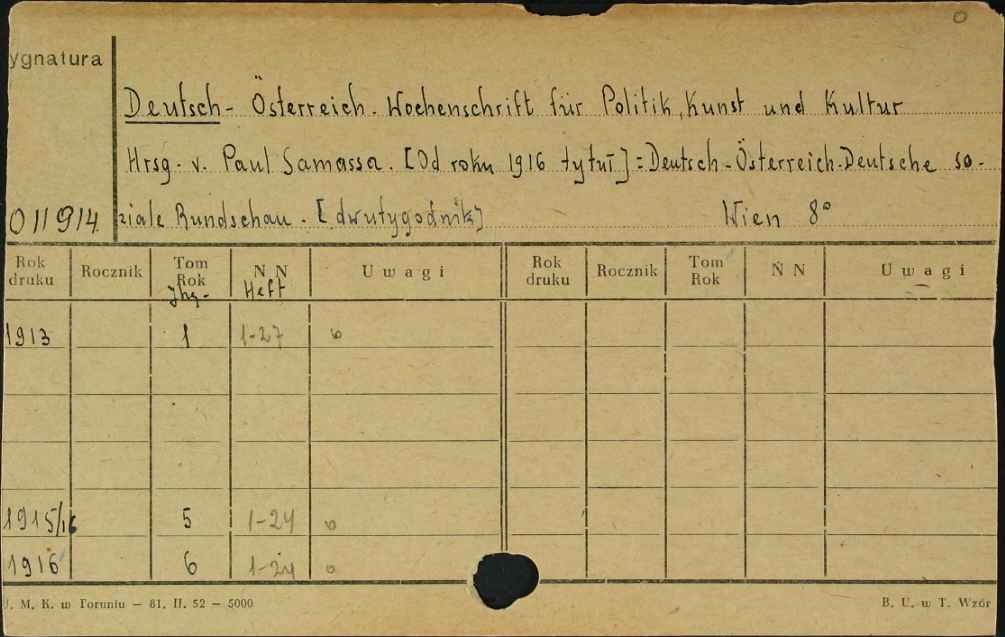 0
ygnatura
Deutsch-Österreich. Wochenschrift für Politik, Kunst und Kultur
Hrsg. v. Paul Samassa. [Od roku 1916 tytuł] = Deutsch-Österreich. Deutsche so-
011914 ziale Rundschau. [dwutygodnik] Wien 8°
Rok druku Rocznik Tom Rok N N Uwagi Rok druku Rocznik Tom Rok N N Uwagi
Jhg. Heft
1913 1 1-27 b
1915/16 5 1-24 b
1916 6 1-24 b
U. M. K. w Toruniu — 81. II. 52 — 5000 B. U. w T. Wzór